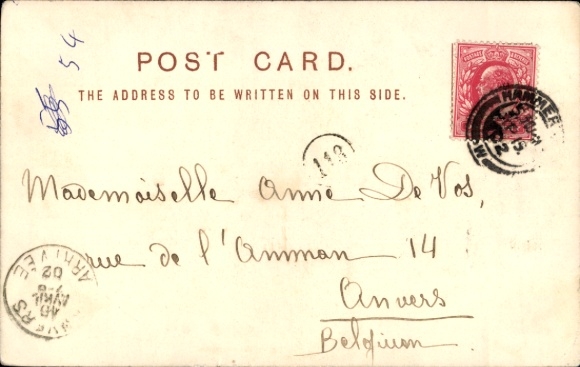 54
POST CARD.
THE ADDRESS TO BE WRITTEN ON THIS SIDE.
118
Mademoiselle Anna De Vos,
rue de l'Amman 14
Anvers
Belgium
ANVERS
ARRIVÉE
02